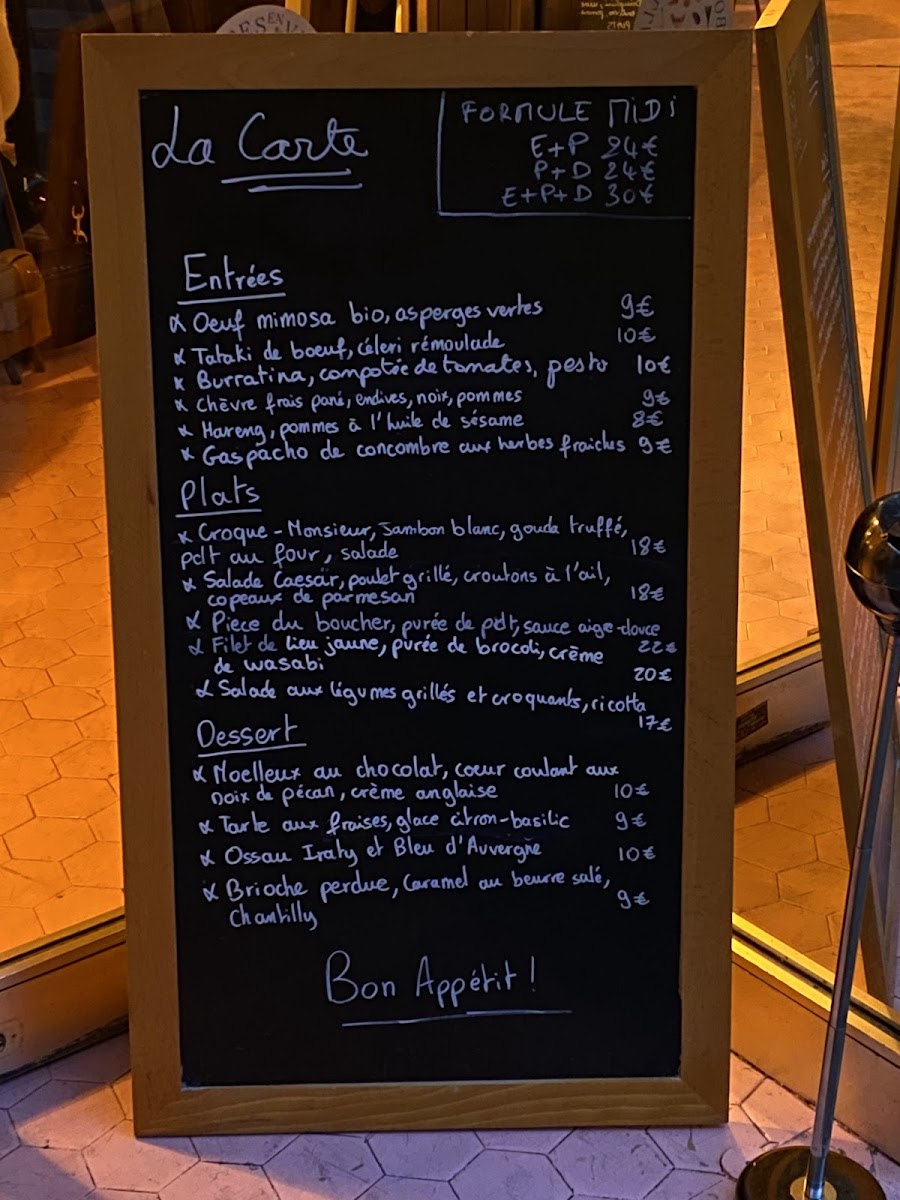 La Carte
FORMULE MIDI
E+P 24€
P+D 24€
E+P+D 30€
Entrées
Oeuf mimosa bio, asperges vertes 9€
Tataki de boeuf, céleri rémoulade 10€
Burratina, compotée de tomates, pesto 10€
Chèvre frais pané, endives, noix, pommes 9€
Hareng, pommes à l'huile de sésame 8€
Gaspacho de concombre aux herbes fraiches 9€
Plats
Croque-Monsieur, Jambon blanc, gouda truffé,
pdt au four, salade 18€
Salade Caesar, poulet grillé, croutons à l'ail,
copeaux de parmesan 18€
Pièce du boucher, purée de pdt, sauce aigre-douce
22€
Filet de lieu jaune, purée de brocoli, crème
de wasabi 20€
Salade aux légumes grillés et croquants, ricotta
17€
Dessert
Moelleux au chocolat, coeur coulant aux
noix de pécan, crème anglaise 10€
Tarte aux fraises, glace citron-basilic 9€
Ossau Iraty et Bleu d'Auvergne 10€
Brioche perdue, Caramel au beurre salé,
Chantilly 9€
Bon Appétit !